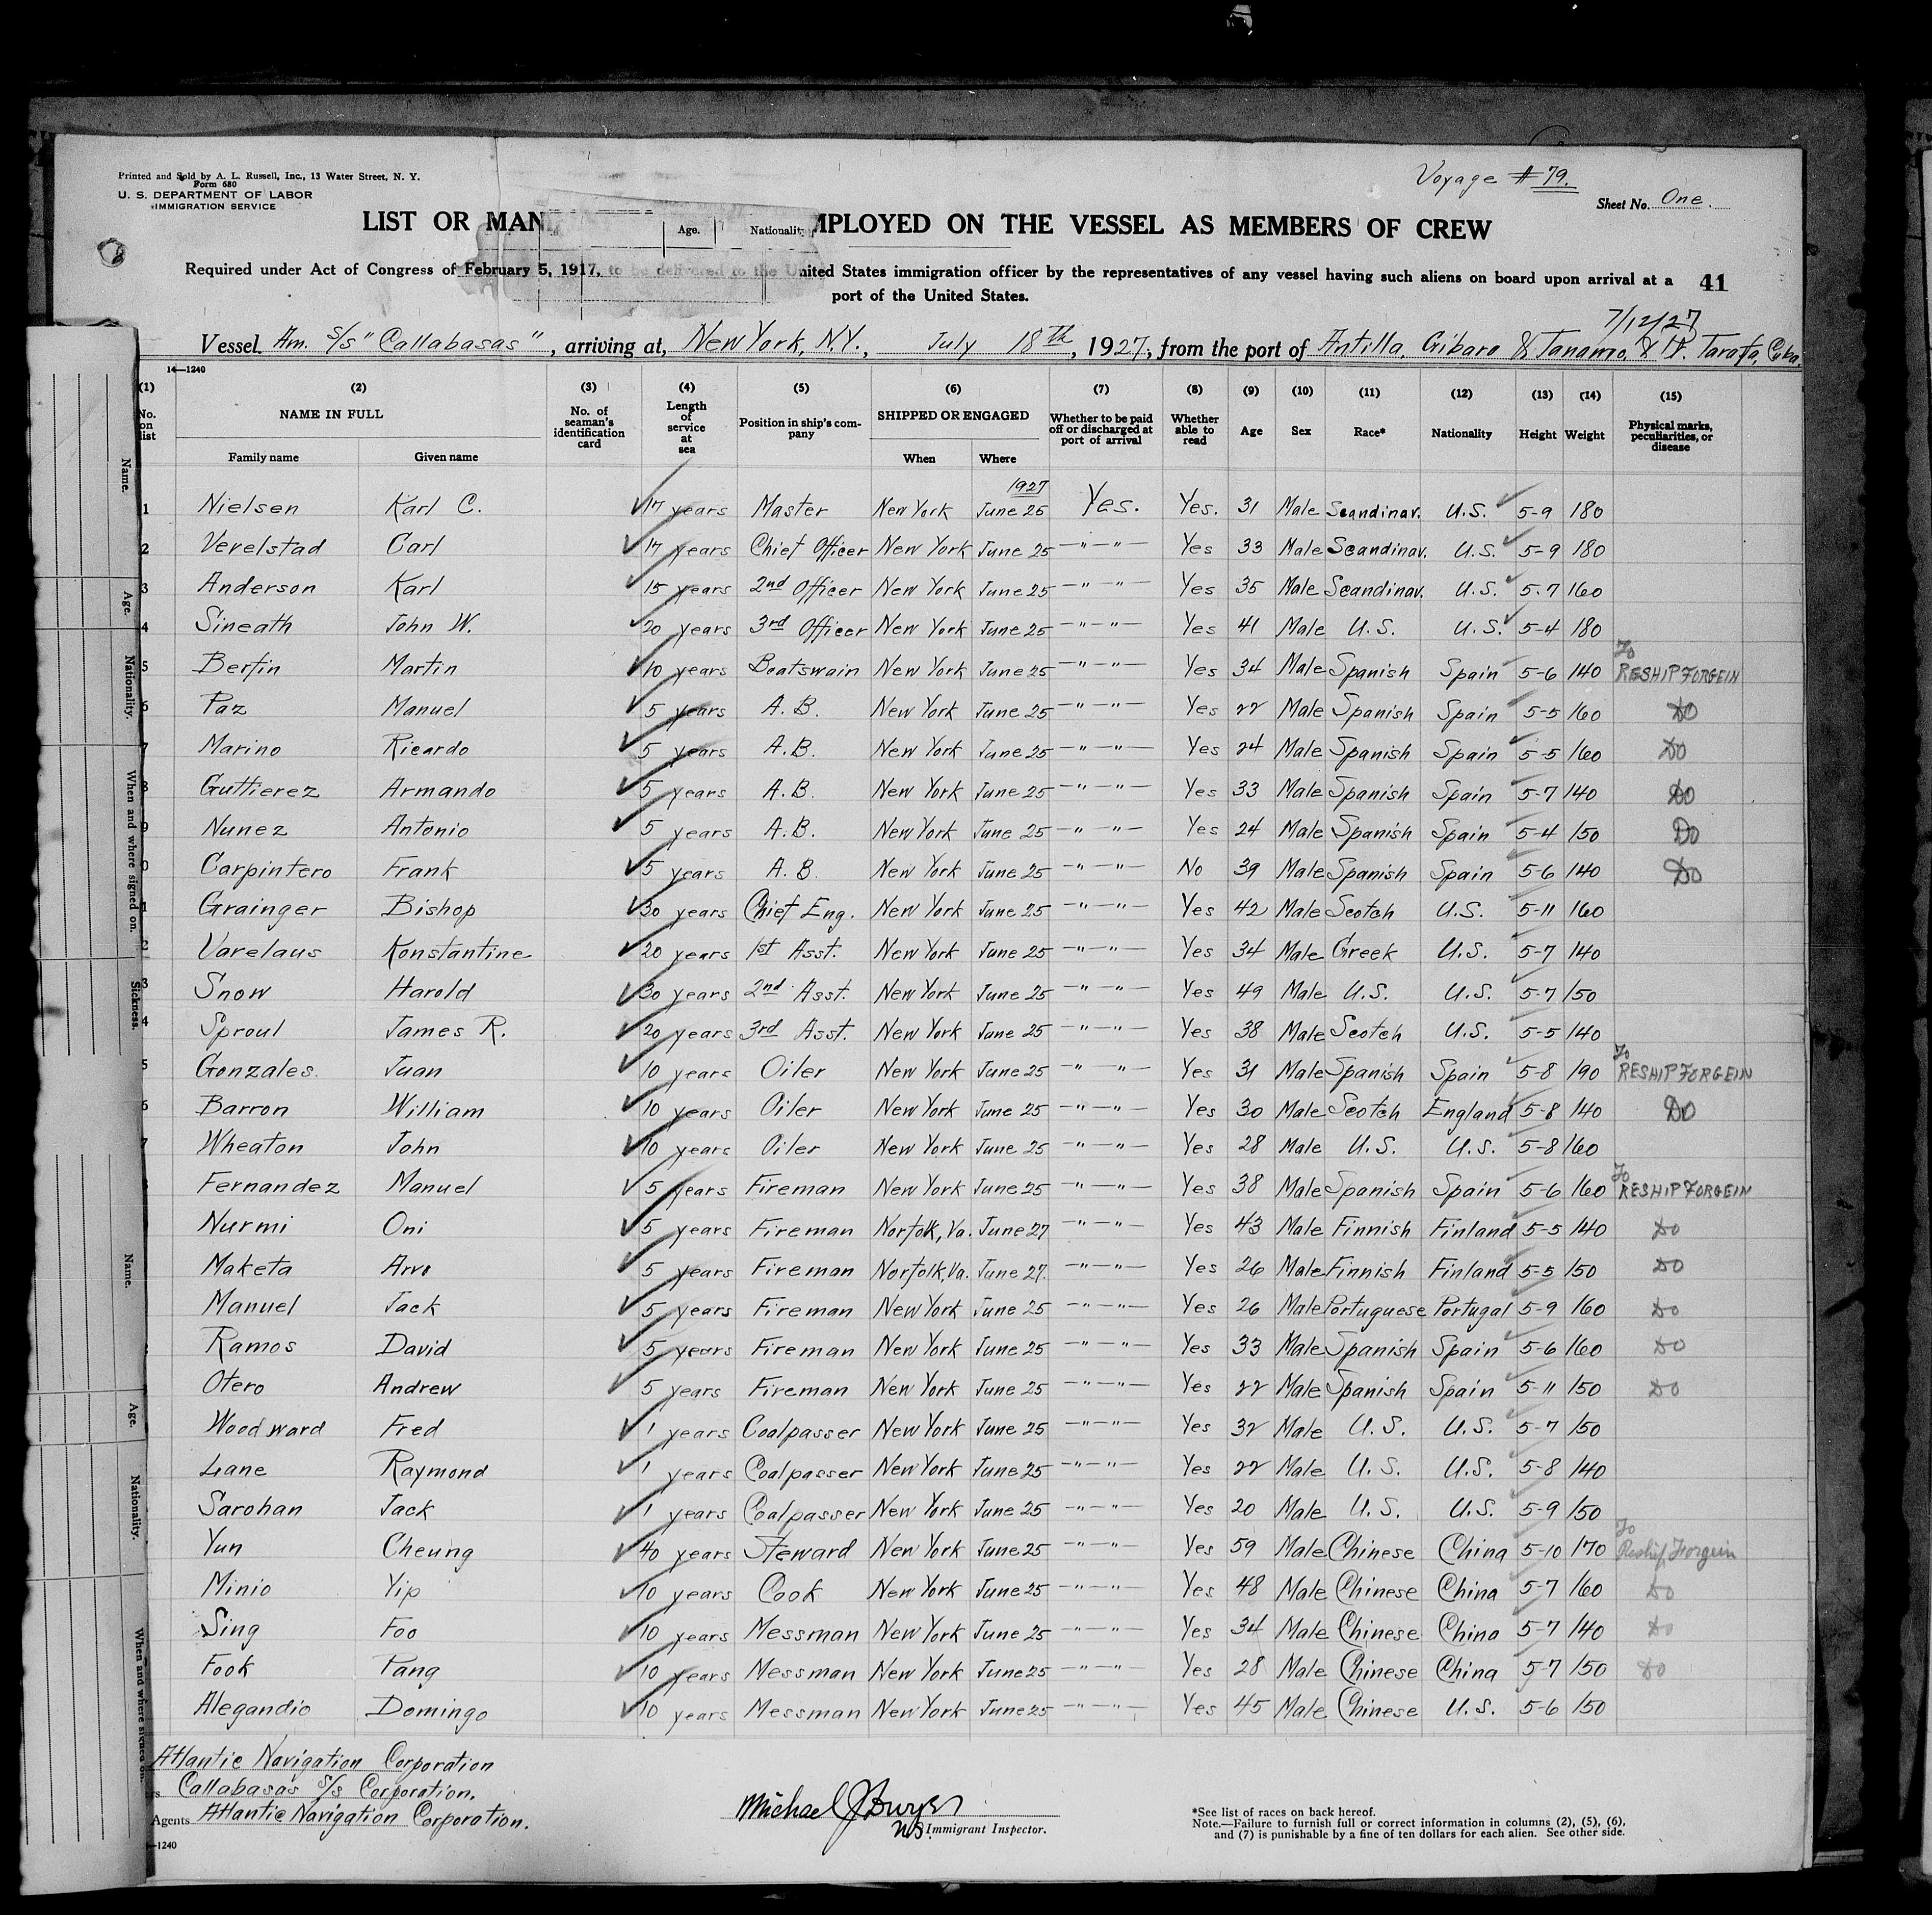 Voyage # 79.
Printed and Sold by A. L. Russell, Inc., 13 Water Street, N. Y.
Form 680
U. S. DEPARTMENT OF LABOR
IMMIGRATION SERVICE
Sheet No. One.
LIST OR MAN Age. Nationality MPLOYED ON THE VESSEL AS MEMBERS OF CREW
Required under Act of Congress of February 5, 1917, to be delivered to the United States immigration officer by the representatives of any vessel having such aliens on board upon arrival at a
port of the United States.
41
7/12/27
Vessel Am. S/s "Callabasas", arriving at, New York, N.Y., July 18th, 1927, from the port of Antilla, Gibaro & Tanamo, & Pt. Tarafa, Cuba.
14—1240
(1) (2) (3) (4) (5) (6) (7) (8) (9) (10) (11) (12) (13) (14) (15)
No. on list NAME IN FULL Family name Given name No. of seaman's identification card Length of service at sea Position in ship's company SHIPPED OR ENGAGED When Where Whether to be paid off or discharged at port of arrival Whether able to read Age Sex Race* Nationality Height Weight Physical marks, peculiarities, or disease
1927
1 Nielsen Karl C. 17 years Master New York June 25 Yes. Yes. 31 Male Scandinav. U.S. 5-9 180
2 Verelstad Carl 17 years Chief Officer New York June 25 —"—"— Yes 33 Male Scandinav. U.S. 5-9 180
3 Anderson Karl 15 years 2nd Officer New York June 25 —"—"— Yes 35 Male Scandinav. U.S. 5-7 160
4 Sineath John W. 20 years 3rd Officer New York June 25 —"—"— Yes 41 Male U.S. U.S. 5-4 180
5 Bertin Martin 10 years Boatswain New York June 25 —"—"— Yes 34 Male Spanish Spain 5-6 140 To RESHIP FORGEIN
6 Paz Manuel 5 years A.B. New York June 25 —"—"— Yes 22 Male Spanish Spain 5-5 160 DO
7 Marino Ricardo 5 years A.B. New York June 25 —"—"— Yes 24 Male Spanish Spain 5-5 160 DO
8 Guttierez Armando 5 years A.B. New York June 25 —"—"— Yes 33 Male Spanish Spain 5-7 140 DO
9 Nunez Antonio 5 years A.B. New York June 25 —"—"— Yes 24 Male Spanish Spain 5-4 150 DO
0 Carpintero Frank 5 years A.B. New York June 25 —"—"— No 39 Male Spanish Spain 5-6 140 DO
1 Grainger Bishop 30 years Chief Eng. New York June 25 —"—"— Yes 42 Male Scotch U.S. 5-11 160
2 Varelaus Konstantine 20 years 1st Asst. New York June 25 —"—"— Yes 34 Male Greek U.S. 5-7 140
3 Snow Harold 30 years 2nd Asst. New York June 25 —"—"— Yes 49 Male U.S. U.S. 5-7 150
4 Sproul James R. 20 years 3rd Asst. New York June 25 —"—"— Yes 38 Male Scotch U.S. 5-5 140
5 Gonzales Juan 10 years Oiler New York June 25 —"—"— Yes 31 Male Spanish Spain 5-8 190 To RESHIP FORGEIN
6 Barron William 10 years Oiler New York June 25 —"—"— Yes 30 Male Scotch England 5-8 140 DO
7 Wheaton John 10 years Oiler New York June 25 —"—"— Yes 28 Male U.S. U.S. 5-8 160
Fernandez Manuel 5 years Fireman New York June 25 —"—"— Yes 38 Male Spanish Spain 5-6 160 To RESHIP FORGEIN
Nurmi Oni 5 years Fireman Norfolk, Va. June 27 —"—"— Yes 43 Male Finnish Finland 5-5 140 DO
Maketa Arvo 5 years Fireman Norfolk, Va. June 27. —"—"— Yes 26 Male Finnish Finland 5-5 150 DO
Manuel Jack 5 years Fireman New York June 25 —"—"— Yes 26 Male Portuguese Portugal 5-9 160 DO
Ramos David 5 years Fireman New York June 25 —"—"— Yes 33 Male Spanish Spain 5-6 160 DO
Otero Andrew 5 years Fireman New York June 25 —"—"— Yes 22 Male Spanish Spain 5-11 150 DO
Woodward Fred 1 years Coalpasser New York June 25 —"—"— Yes 32 Male U.S. U.S. 5-7 150
Lane Raymond 1 years Coalpasser New York June 25 —"—"— Yes 22 Male U.S. U.S. 5-8 140
Sarohan Jack 1 years Coalpasser New York June 25 —"—"— Yes 20 Male U.S. U.S. 5-9 150
Yun Cheung 40 years Steward New York June 25 —"—"— Yes 59 Male Chinese China 5-10 170 To Reship Forgein
Minio Yip 10 years Cook New York June 25 —"—"— Yes 48 Male Chinese China 5-7 160 DO
Sing Foo 10 years Messman New York June 25 —"—"— Yes 34 Male Chinese China 5-7 140 DO
Fook Pang 10 years Messman New York June 25 —"—"— Yes 28 Male Chinese China 5-7 150 DO
Alegandio Domingo 10 years Messman New York June 25 —"—"— Yes 45 Male Chinese U.S. 5-6 150
Atlantic Navigation Corporation
s Callabasas S/s Corporation.
Agents Atlantic Navigation Corporation.
—1240
Michael J
Immigrant Inspector.
*See list of races on back hereof.
Note.—Failure to furnish full or correct information in columns (2), (5), (6),
and (7) is punishable by a fine of ten dollars for each alien. See other side.
Name.
Age.
Nationality.
When and where signed on.
Sickness.
Name.
Age.
Nationality.
When and where signed on.